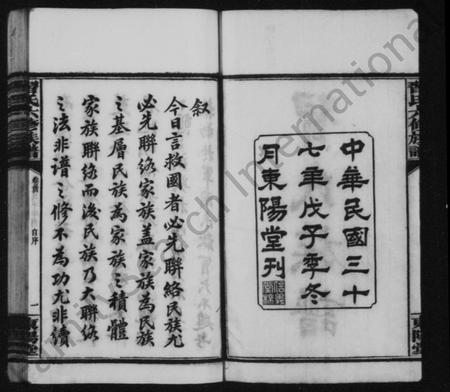 中華民國三十
七年戊子季冬
月東陽堂刊
敘
今日言救國者必先聯絡民族尤
必先聯絡家族蓋家族為民族
之基層民族為家族之積體
家族聯絡而後民族乃大聯絡
之法非譜之修不為功尤非續
氏六修族譜
卷首
自序
一
東陽堂
FamilySearch International